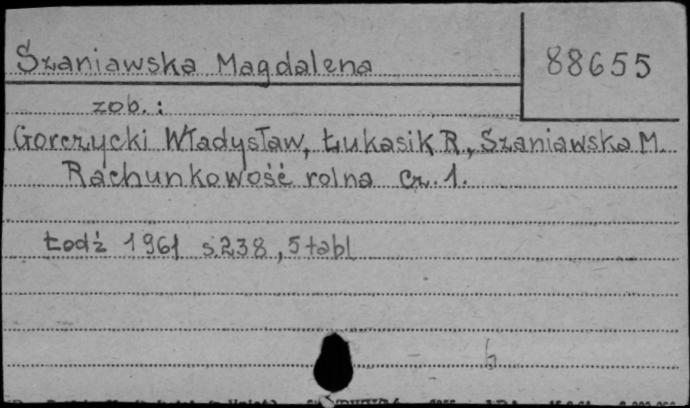 Szaniawska Magdalena
88655
zob.:
Gorczycki Władysław, Łukasik R., Szaniawska M.
Rachunkowość rolna cz. 1.
Łódź 1961 s.238, 5 tabl
6